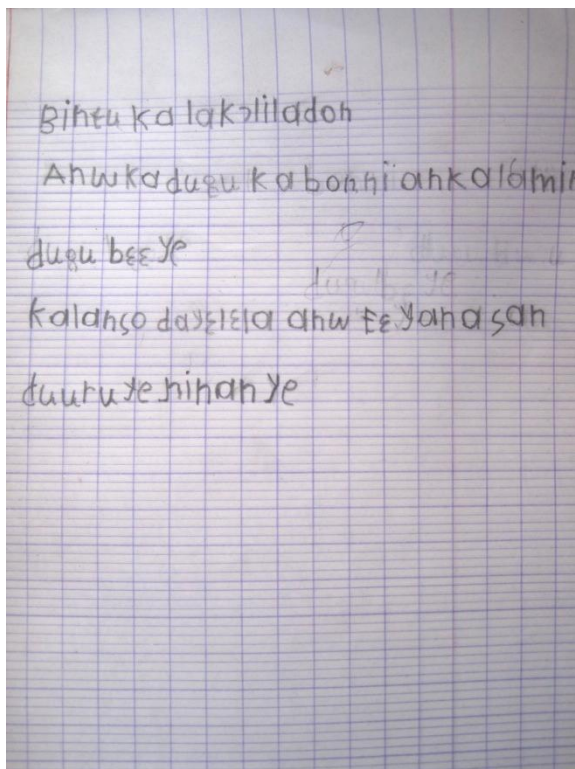 Bintu ka lakɔliladon
Anw ka dugu ka bon ni an kalamin
dugu bɛɛ ye
kalanso dayɛlɛla anw fɛ yan a san
duuru ye ninan ye